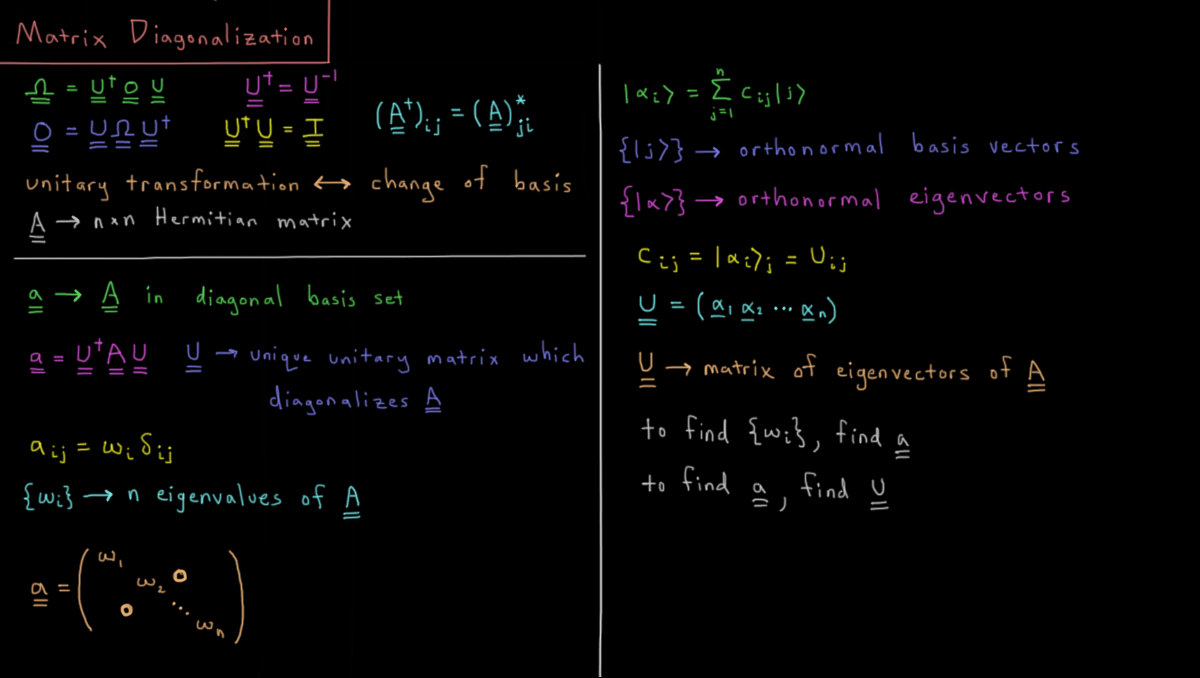 Matrix Diagonalization
Ω = U† O U
U† = U⁻¹
O = U Ω U†
U† U = I
(A†)ᵢⱼ = (A)*ⱼᵢ
unitary transformation ↔ change of basis
A → n×n Hermitian matrix
a → A in diagonal basis set
a = U† A U
U → unique unitary matrix which
diagonalizes A
aᵢⱼ = ωᵢ δᵢⱼ
{ωᵢ} → n eigenvalues of A
a = ( ω₁ ω₂ O O ⋱ ωₙ )
|αᵢ⟩ = Σⁿⱼ₌₁ cᵢⱼ|j⟩
{|j⟩} → orthonormal basis vectors
{|α⟩} → orthonormal eigenvectors
Cᵢⱼ = |αᵢ⟩ⱼ = Uᵢⱼ
U = (α₁ α₂ ⋯ αₙ)
U → matrix of eigenvectors of A
to find {ωᵢ}, find a
to find a, find U